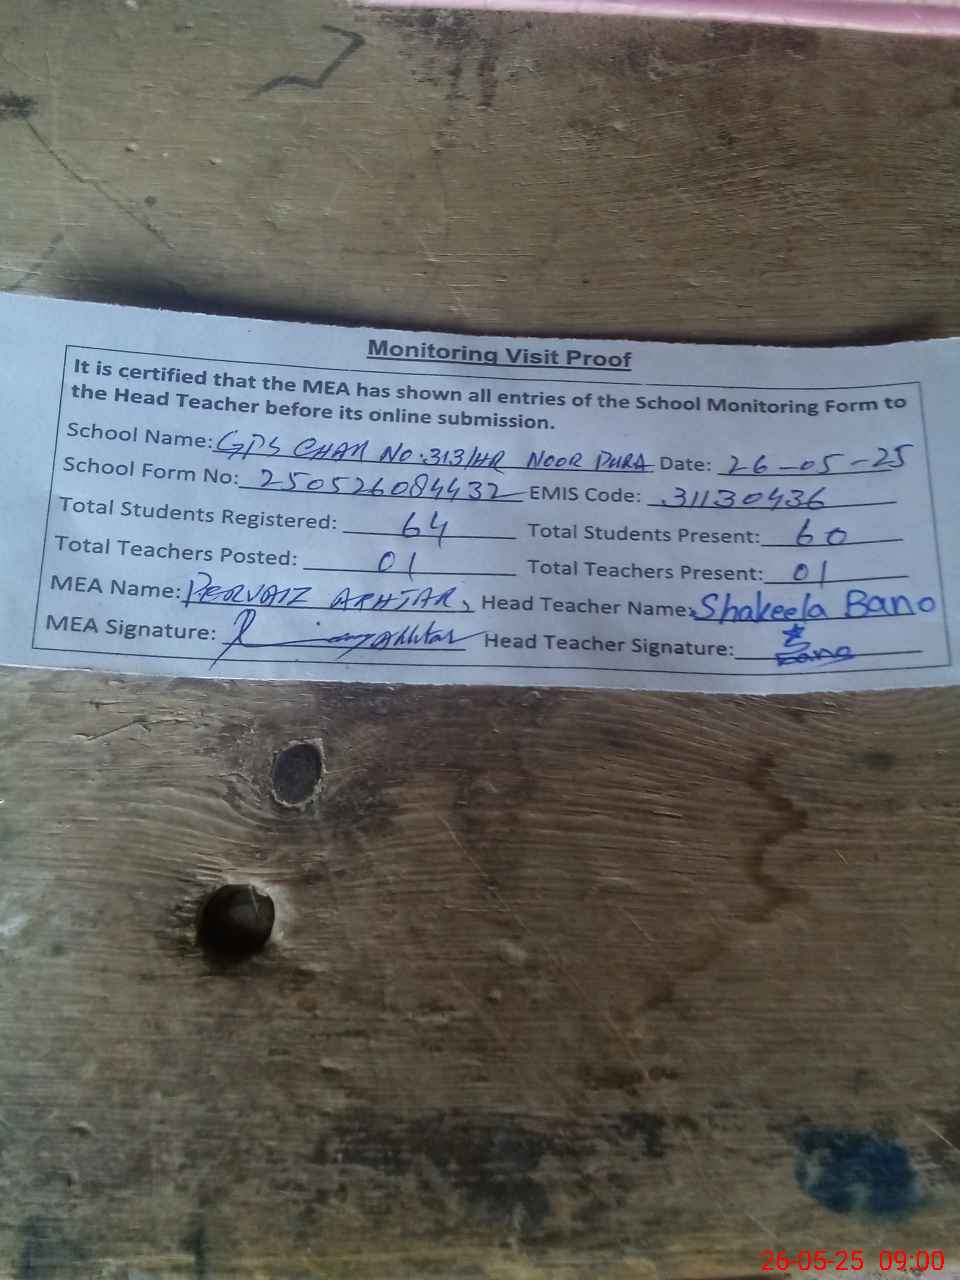 Monitoring Visit Proof
It is certified that the MEA has shown all entries of the School Monitoring Form to
the Head Teacher before its online submission.
School Name: GPS CHAK NO.313/HR NOOR PURA Date: 26-05-25
School Form No: 250526084432 EMIS Code: 31130436
Total Students Registered: 64 Total Students Present: 60
Total Teachers Posted: 01 Total Teachers Present: 01
MEA Name: PERVAIZ AKHTAR, Head Teacher Name: Shakeela Bano
MEA Signature: Akhtar Head Teacher Signature: Bano
26-05-25 09:00